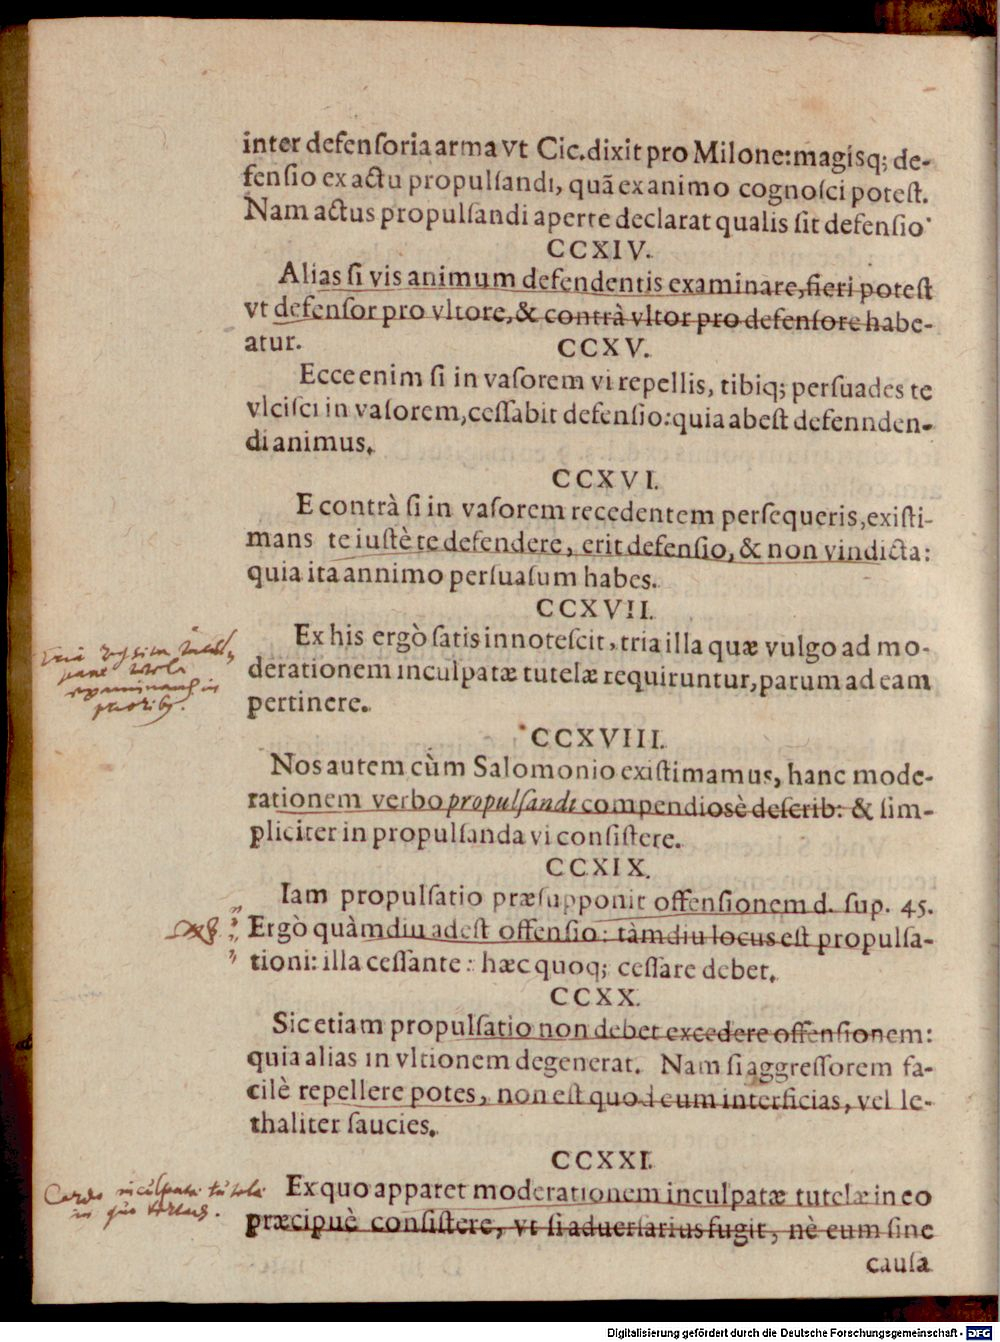 inter defenſoria arma vt Cic. dixit pro Milone: magisq; de-
fenſio ex actu propulſandi, quã ex animo cognoſci poteſt.
Nam actus propulſandi aperte declarat qualis ſit defenſio
CCXIV.
Alias ſi vis animum defendentis examinare, fieri poteſt
vt defenſor pro vltore, & contrà vltor pro defenſore habe-
atur.
CCXV.
Ecce enim ſi in vaſorem vi repellis, tibiq; perſuades te
vlciſci in vaſorem, ceſſabit defenſio: quia abeſt defennden-
di animus.
CCXVI.
E contrà ſi in vaſorem recedentem perſequeris, exiſti-
mans te iuſtè te defendere, erit defenſio, & non vindicta:
quia ita annimo perſuaſum habes.
CCXVII.
Ex his ergò ſatis innoteſcit, tria illa quæ vulgo ad mo-
derationem inculpatæ tutelæ requiruntur, parum ad eam
pertinere.
CCXVIII.
Nos autem cùm Salomonio exiſtimamus, hanc mode-
rationem verbo propulſandi compendiosè deſcrib: & ſim-
pliciter in propulſanda vi conſiſtere.
CCXIX.
Iam propulſatio præſupponit offenſionem d. ſup. 45.
Ergò quàmdiu adeſt offenſio: tàmdiu locus eſt propulſa-
tioni: illa ceſſante: hæc quoq; ceſſare debet.
CCXX.
Sic etiam propulſatio non debet excedere offenſionem:
quia alias in vltionem degenerat. Nam ſi aggreſſorem fa-
cilè repellere potes, non eſt quod eum interficias, vel le-
thaliter ſaucies.
CCXXI.
Cardo inculpatæ tutelæ
in quo
Ex quo apparet moderationem inculpatæ tutelæ in eo
præcipuè conſiſtere, vt ſi aduerſarius fugit, nè eum ſine
cauſa
Digitalisierung gefördert durch die Deutsche Forschungsgemeinschaft - DFG